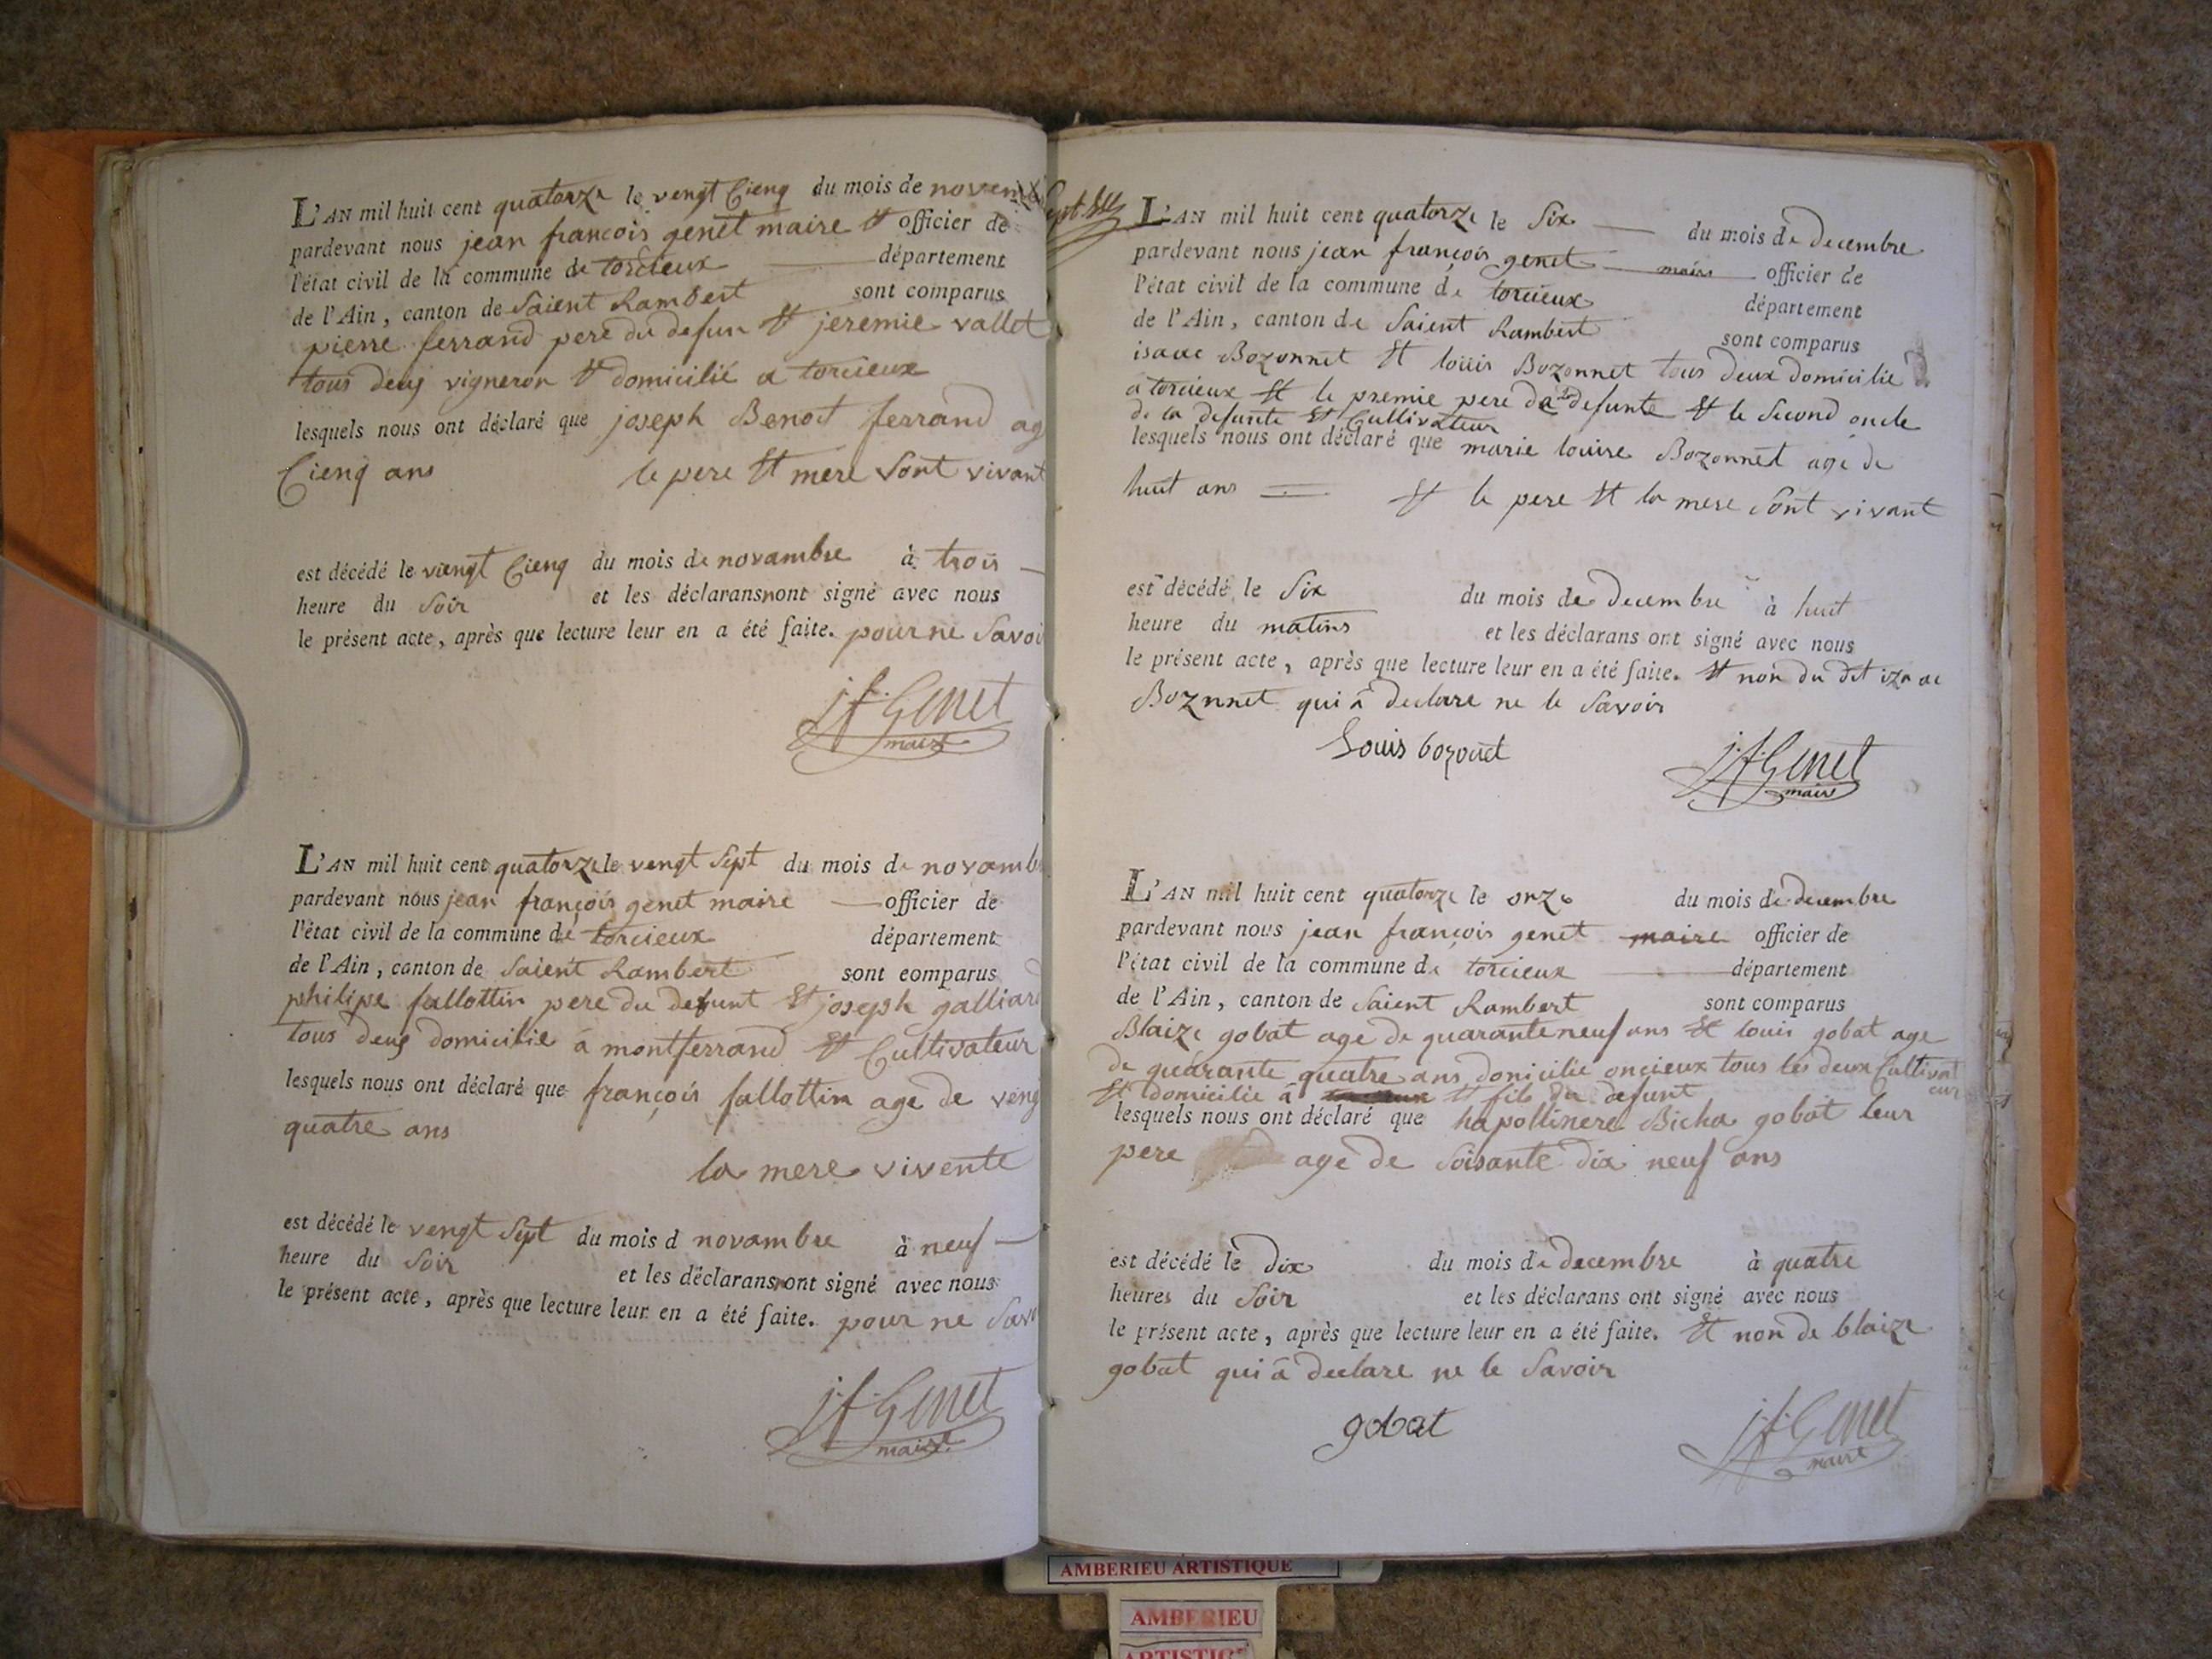 L'AN mil huit cent quatorze le vengt Cienq du mois de novem
pardevant nous jean francois genet maire et officier de
l'état civil de la commune de torcieux département
de l'Ain, canton de Saient Rambert sont comparus
pierre ferrand pere du defun et jeremie vallet
tous deus vigneron et domicilié a torcieux
lesquels nous ont déclaré que joseph Benoit ferrand ag
Cienq ans le pere et mere sont vivant
est décédé le viengt Cienq du mois de novambre à trois
heure du Soir et les déclarans nont signé avec nous
le présent acte, après que lecture leur en a été faite. pour ne Savoi
j.f. Genet
maire
L'AN mil huit cent quatorze le vengt Sept du mois de novamb
pardevant nous jean françois genet maire officier de
l'état civil de la commune de torcieux département
de l'Ain, canton de Saient Rambert sont comparus
philipe fallottin pere du defunt et joseph galliard
tous deus domicilié à montferrand et Cultivateur
lesquels nous ont déclaré que françois fallottin age de veng
quatre ans
la mere vivente
est décédé le vengt Sept du mois d novambre à neuf
heure du Soir et les déclarans nont signé avec nous
le présent acte, après que lecture leur en a été faite. pour ne Sav
j.f. Genet
maire
L'AN mil huit cent quatorze le Six du mois de decembre
pardevant nous jean françois genet maire officier de
l'état civil de la commune de torcieux département
de l'Ain, canton de Saient Rambert sont comparus
isaac Bozonnet et loüis Bozonnet tous deux domicilie
a torcieux et le premie pere de la defunte et le Second oncle
de la defunte et Cultivateur
lesquels nous ont déclaré que marie louise Bozonnet age de
huit ans et le pere et la mere sont vivant
est décédé le Six du mois de decembre à huit
heure du matins et les déclarans ont signé avec nous
le présent acte, après que lecture leur en a été faite. et non du dit izaac
Boznnet qui à declare ne le Savoir
Louis bozonet
j.f. Genet
maire
L'AN mil huit cent quatorze le onze du mois de decembre
pardevant nous jean françois genet maire officier de
l'état civil de la commune de torcieux département
de l'Ain, canton de Saient Rambert sont comparus
Blaize gobat age de quaranteneuf ans et louis gobat age
de quarante quatre ans domicilie oncieux tous les deux Cultivateur
et domicilié à et fils du defunt
lesquels nous ont déclaré que hapollinere Bicha gobat leur
pere age de soisante dix neuf ans
est décédé le dix du mois de decembre à quatre
heures du Soir et les déclarans ont signé avec nous
le présent acte, après que lecture leur en a été faite. et non de blaize
gobat qui à declare ne le Savoir
gobat
j.f. Genet
maire
AMBERIEU ARTISTIQUE
AMBERIEU
ARTISTIQUE